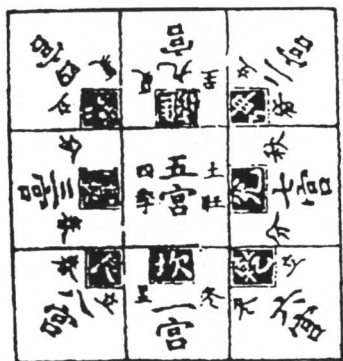 四宮
立夏
巽
九宮
夏至
離
二宮
立秋
坤
三宮
春分
震
五宮
土旺
四季
七宮
秋分
兌
八宮
立春
艮
坎
一宮
冬至
乾
六宮
立冬